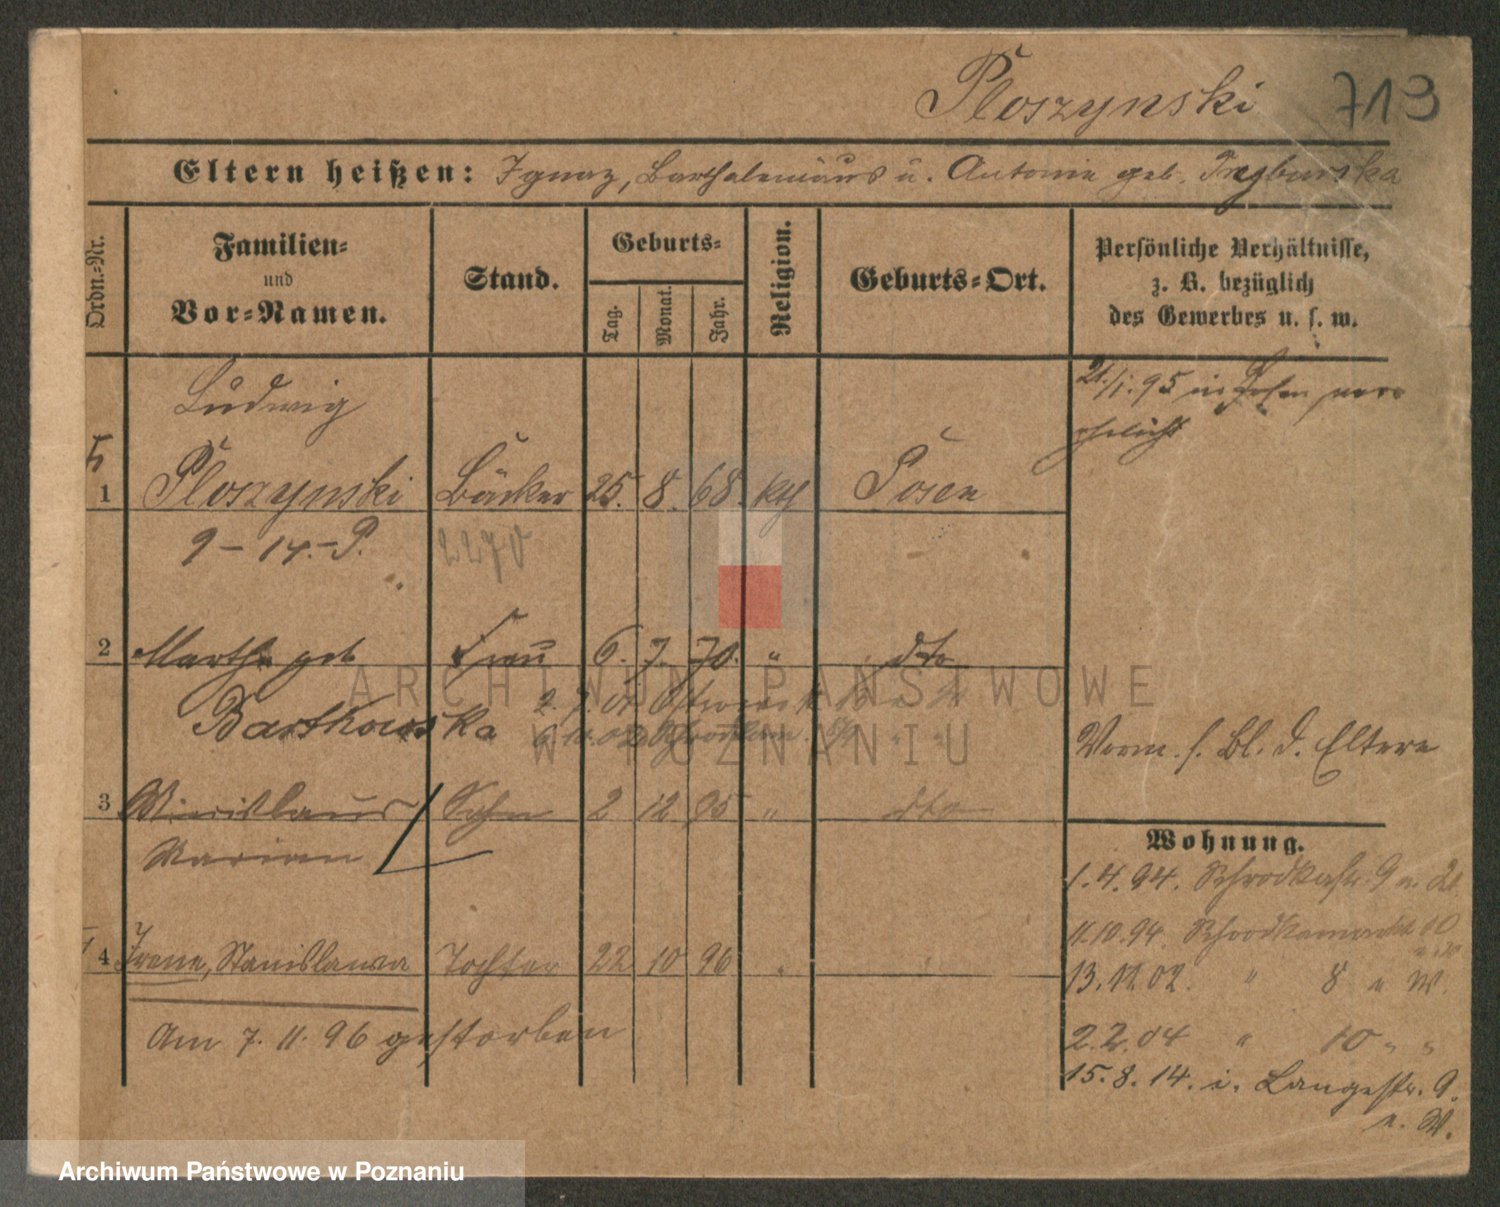 Ploszynski 713
Eltern heißen: Ignaz, Bartholemäus u. Antonie geb.
Ordn.-Nr.
Familien-
und
Vor-Namen.
Stand.
Geburts-
Tag.
Monat.
Jahr.
Religion.
Geburts-Ort.
Persönliche Verhältnisse,
z. B. bezüglich
des Gewerbes u. s. w.
Ludwig
1 Ploszynski Bäcker 25. 8. 68. kth Posen
21./1. 95 in Posen ver-
ehelicht
9 – 14. – P. 2270
2 Martha geb. Frau 6. 7. 70. " dto
Bartkowska
Verm. s. Bl. d. Eltern
3 Sohn 2 12 95 " dto
Marian
4 Irene, Stanislawa Tochter 22 10 96 "
Am 7. 11. 96 gestorben
Wohnung.
1.4.94. Schrodkastr. 9
11.10.94. Schrodkamarkt 10
13.11.02. " 8 u W.
2.2.04 " 10 " "
15.8.14. i. Langestr. 9.
u. W.
ARCHIWUM PAŃSTWOWE
W POZNANIU
Archiwum Państwowe w Poznaniu